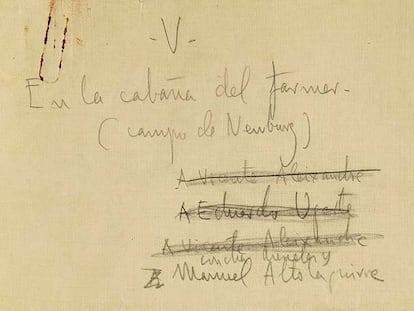 - V -
En la cabaña del farmer -
(campo de Newburg)
A Vicente Aleixandre
A Eduardo Ugarte
A Vicente Aleixandre
Concha Méndez y
A Manuel Altolaguirre